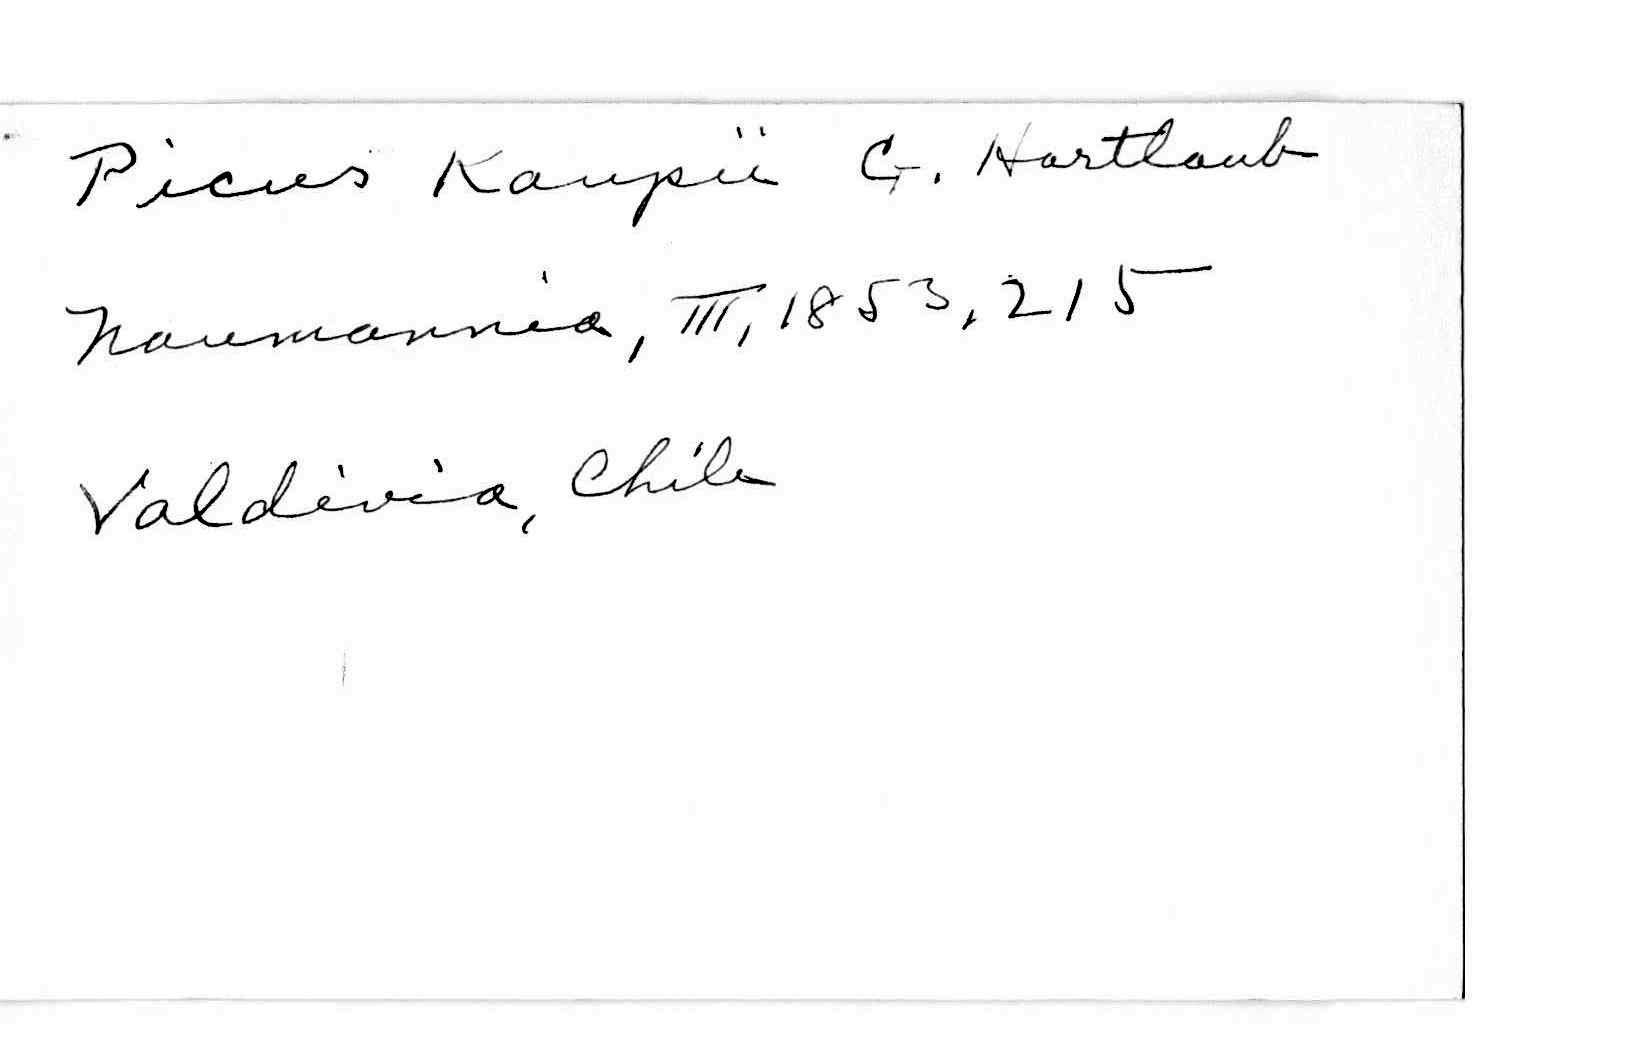 Picus Kaupii G. Hartlaub
Naumannia, III, 1853, 215
Valdivia, Chile